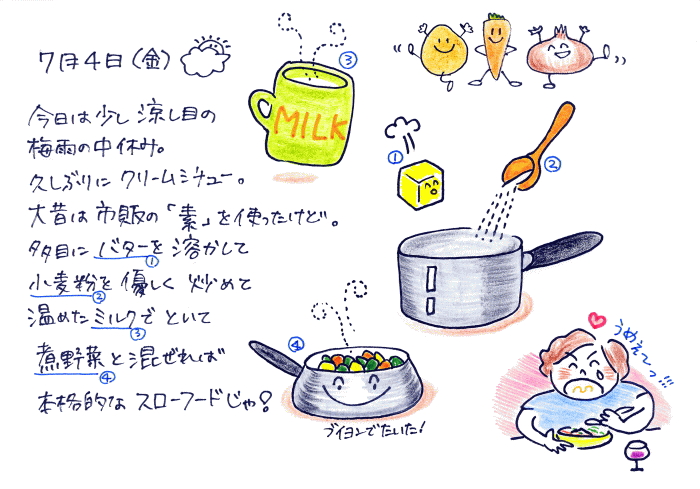 7月4日(金)
今日は少し涼し目の
梅雨の中休み。
久しぶりに クリームシチュー。
大昔は市販の「素」を使ったけど。
多目に バターを 溶かして
①
小麦粉を 優しく 炒めて
②
温めた ミルクで といて
③
煮野菜と混ぜれば
④
本格的な スローフードじゃ!
MILK
③
①
②
④
ブイヨンでたいた!
うめぇ〜っ!!!